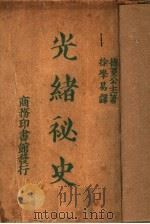 德菱公主著
徐學易譯
光緒祕史
商務印書館發行